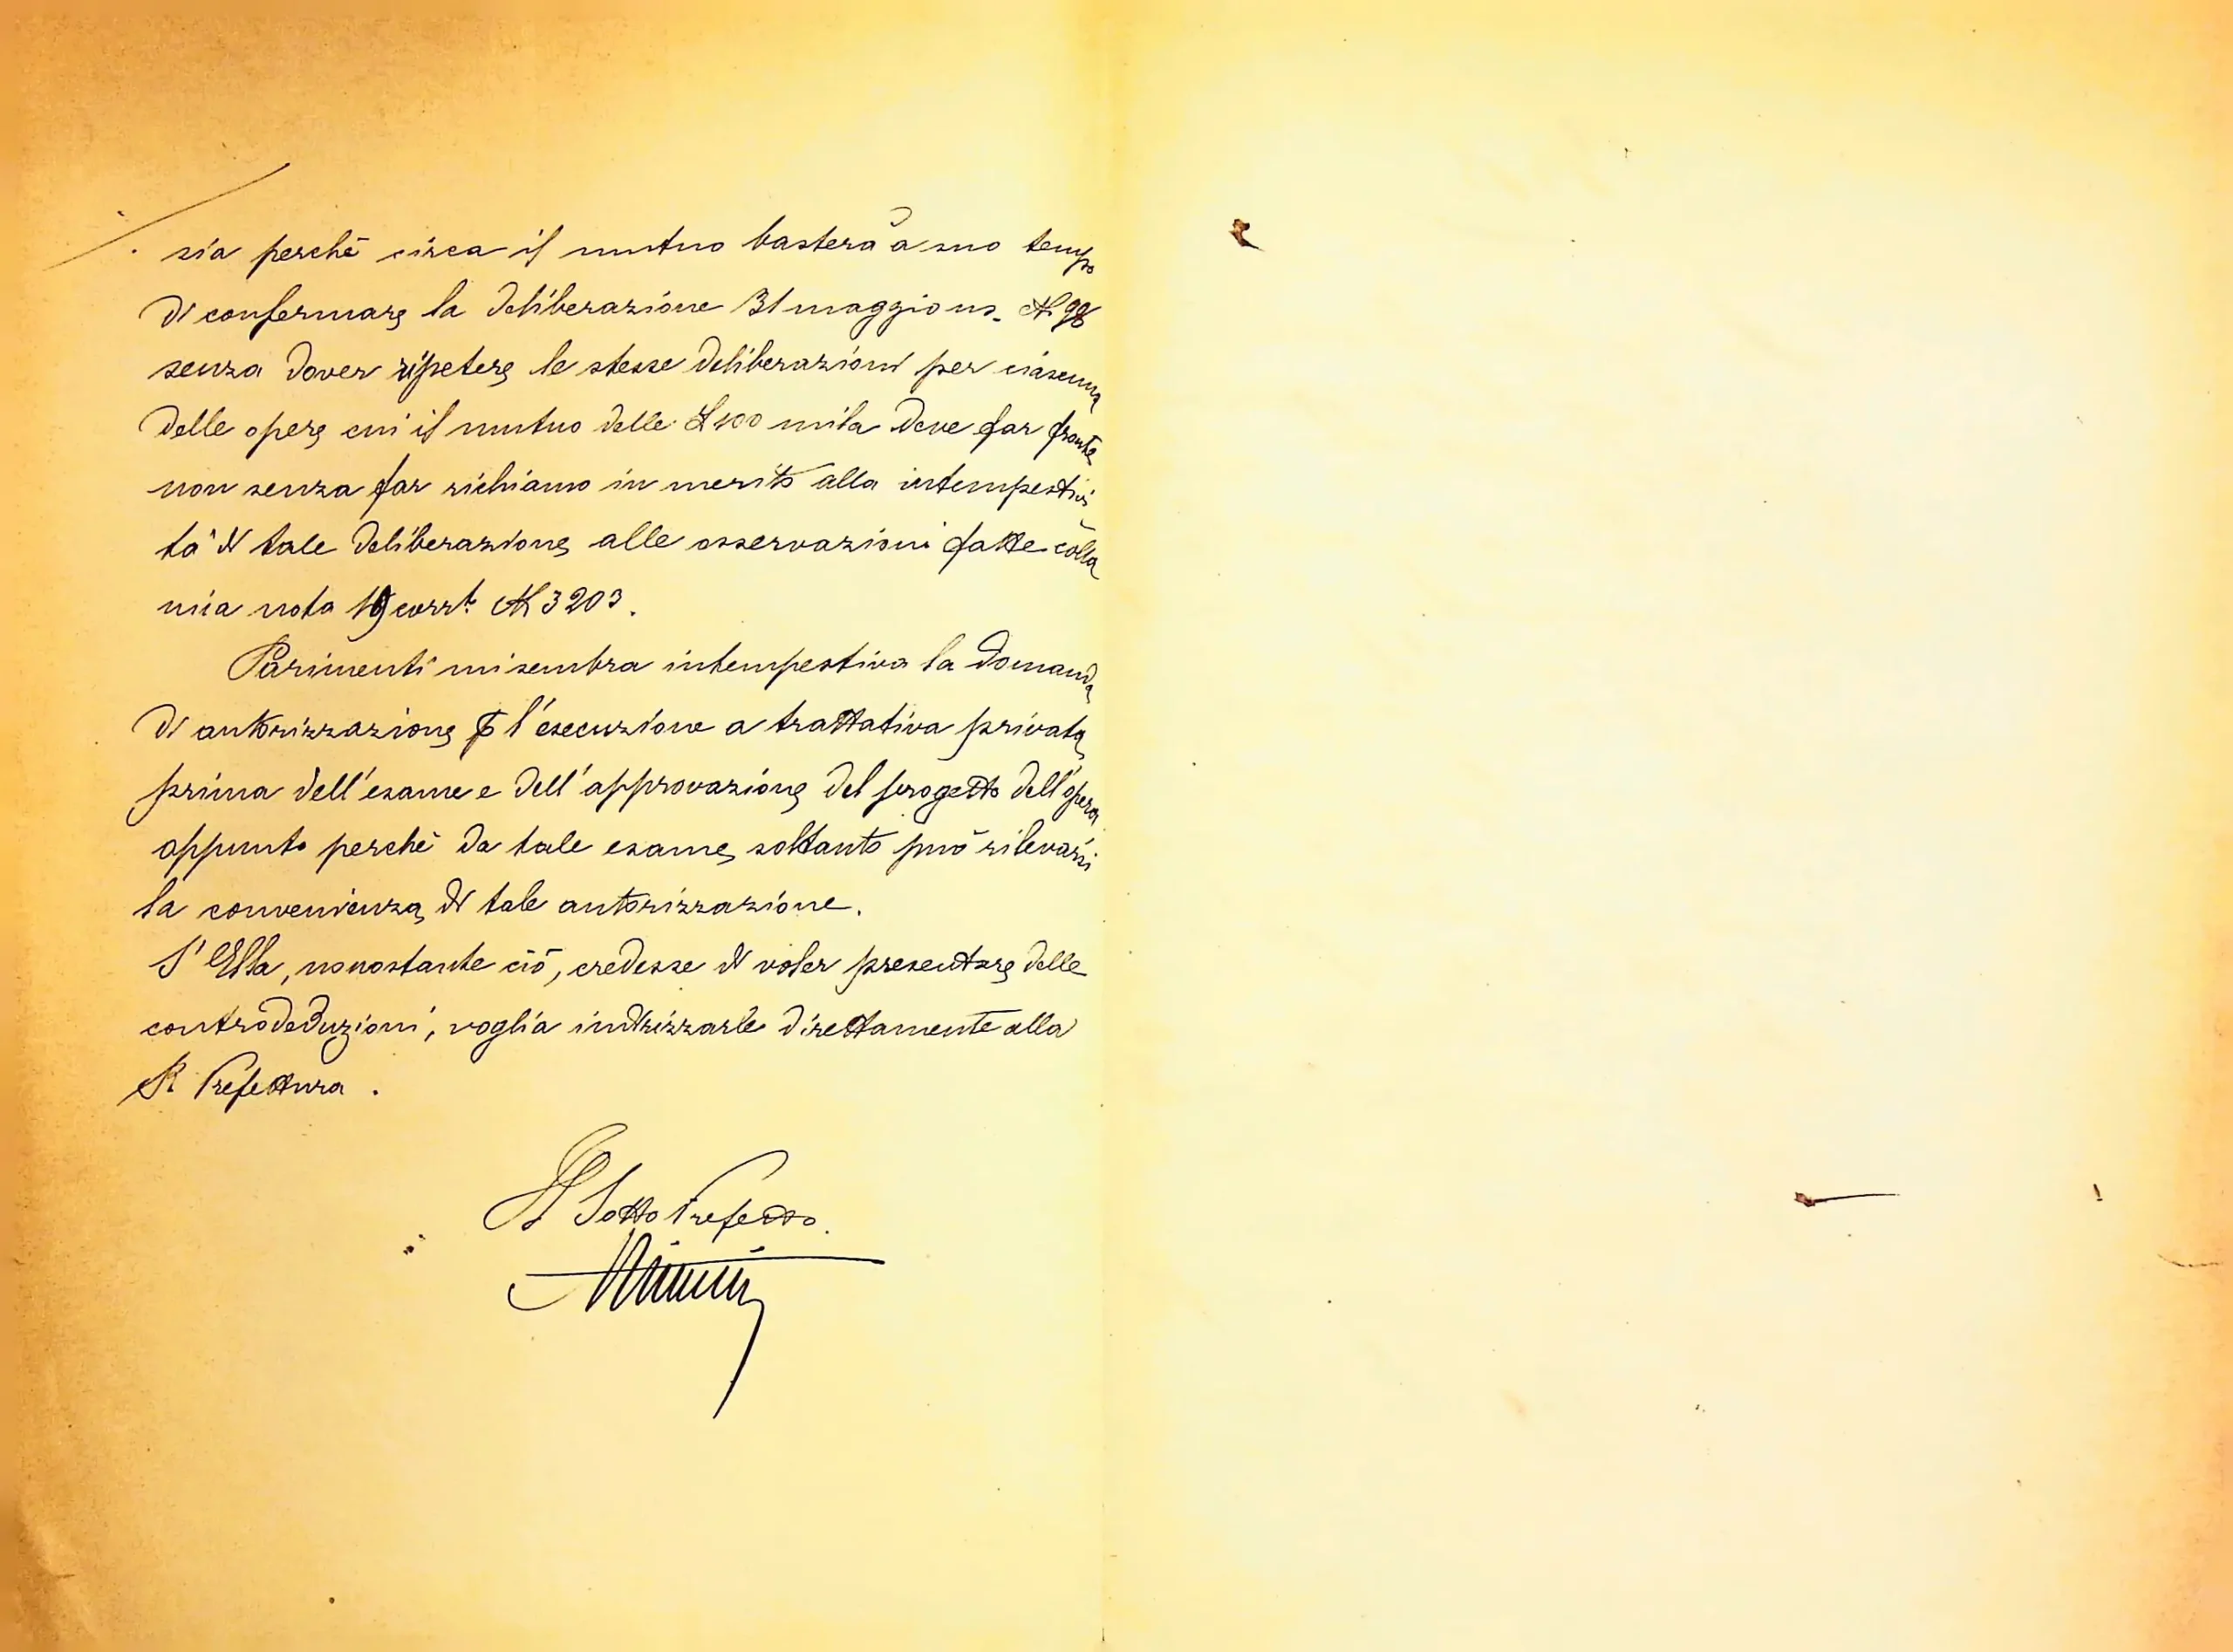 sia perchè circa il mutuo basterà a suo tempo
di confermare la deliberazione 31 maggio us. N 98
senza dover ripetere le stesse deliberazioni per ciascuna
delle opere cui il mutuo delle £ 100 mila deve far fronte
non senza far richiamo in merito alla intempestivi
tà di tale deliberazione alle osservazioni fatte colla
mia nota 19 corrt. N 3203.
Parimenti mi sembra intempestiva la domanda
di autorizzazione p l'esecuzione a trattativa privata
prima dell'esame e dell'approvazione del progetto dell'opera
appunto perchè da tale esame soltanto può rilevarsi
la convenienza di tale autorizzazione.
S'Ella, nonostante ciò, credesse di voler presentare delle
controdeduzioni, voglia indirizzarle direttamente alla
R Prefettura.
Il Sotto Prefetto